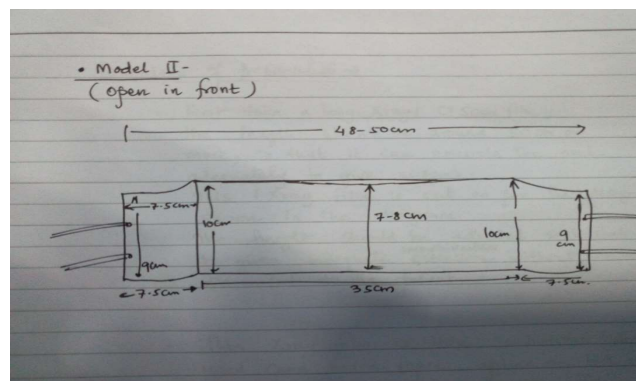 • Model II-
(open in front)
48-50cm
7.5cm
10cm
7-8cm
10cm
9
cm
9cm
7.5cm
35cm
7.5cm.